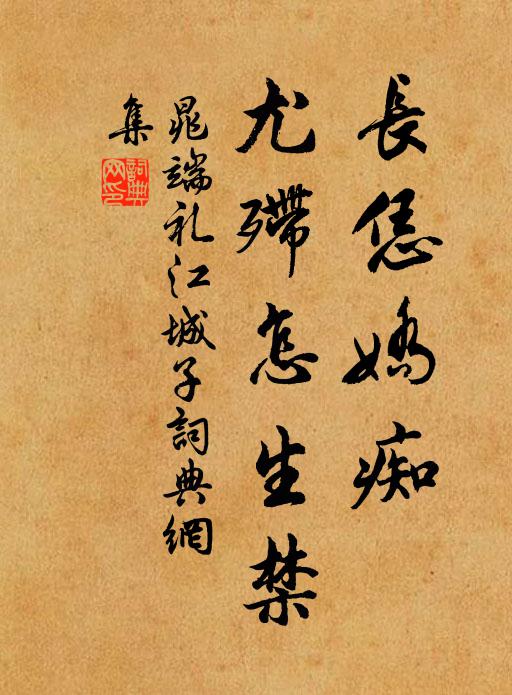 長恁嬌痴
尤殢怎生禁
晁端礼江城子詞典網
集
詞典
网印